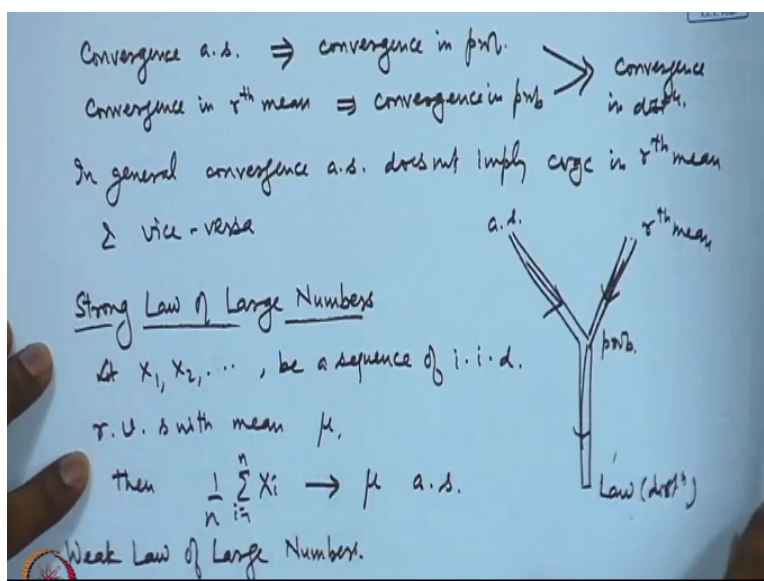 Convergence a.s. ⇒ convergence in prob.
Convergence in rth mean ⇒ convergence in prob
> convergence
in distn.
In general convergence a.s. does not imply cvgc in rth mean
& vice-versa
a.s.
rth mean
prob.
Law (distn)
Strong Law of Large Numbers
Let X1, X2, ..., be a sequence of i.i.d.
r.v.s with mean μ,
then 1/n Σ_{i=1}^{n} Xi → μ a.s.
Weak Law of Large Numbers.